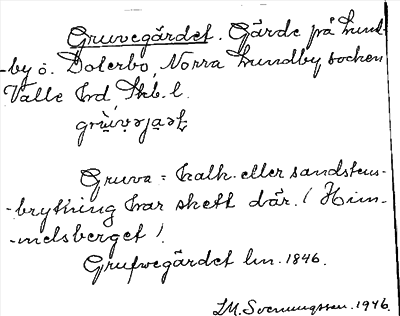 Gruvegärdet. Gärde på Lund-
-by ö. Dolerbo, Norra Lundby socken
Valle hrd, Skb. l.

Gruva = kalk- eller sandstens-
-brytning har skett där. (Him-
-melsberget).
Grufvegärdet lm. 1846.
I.M. Svenungsson. 1946.